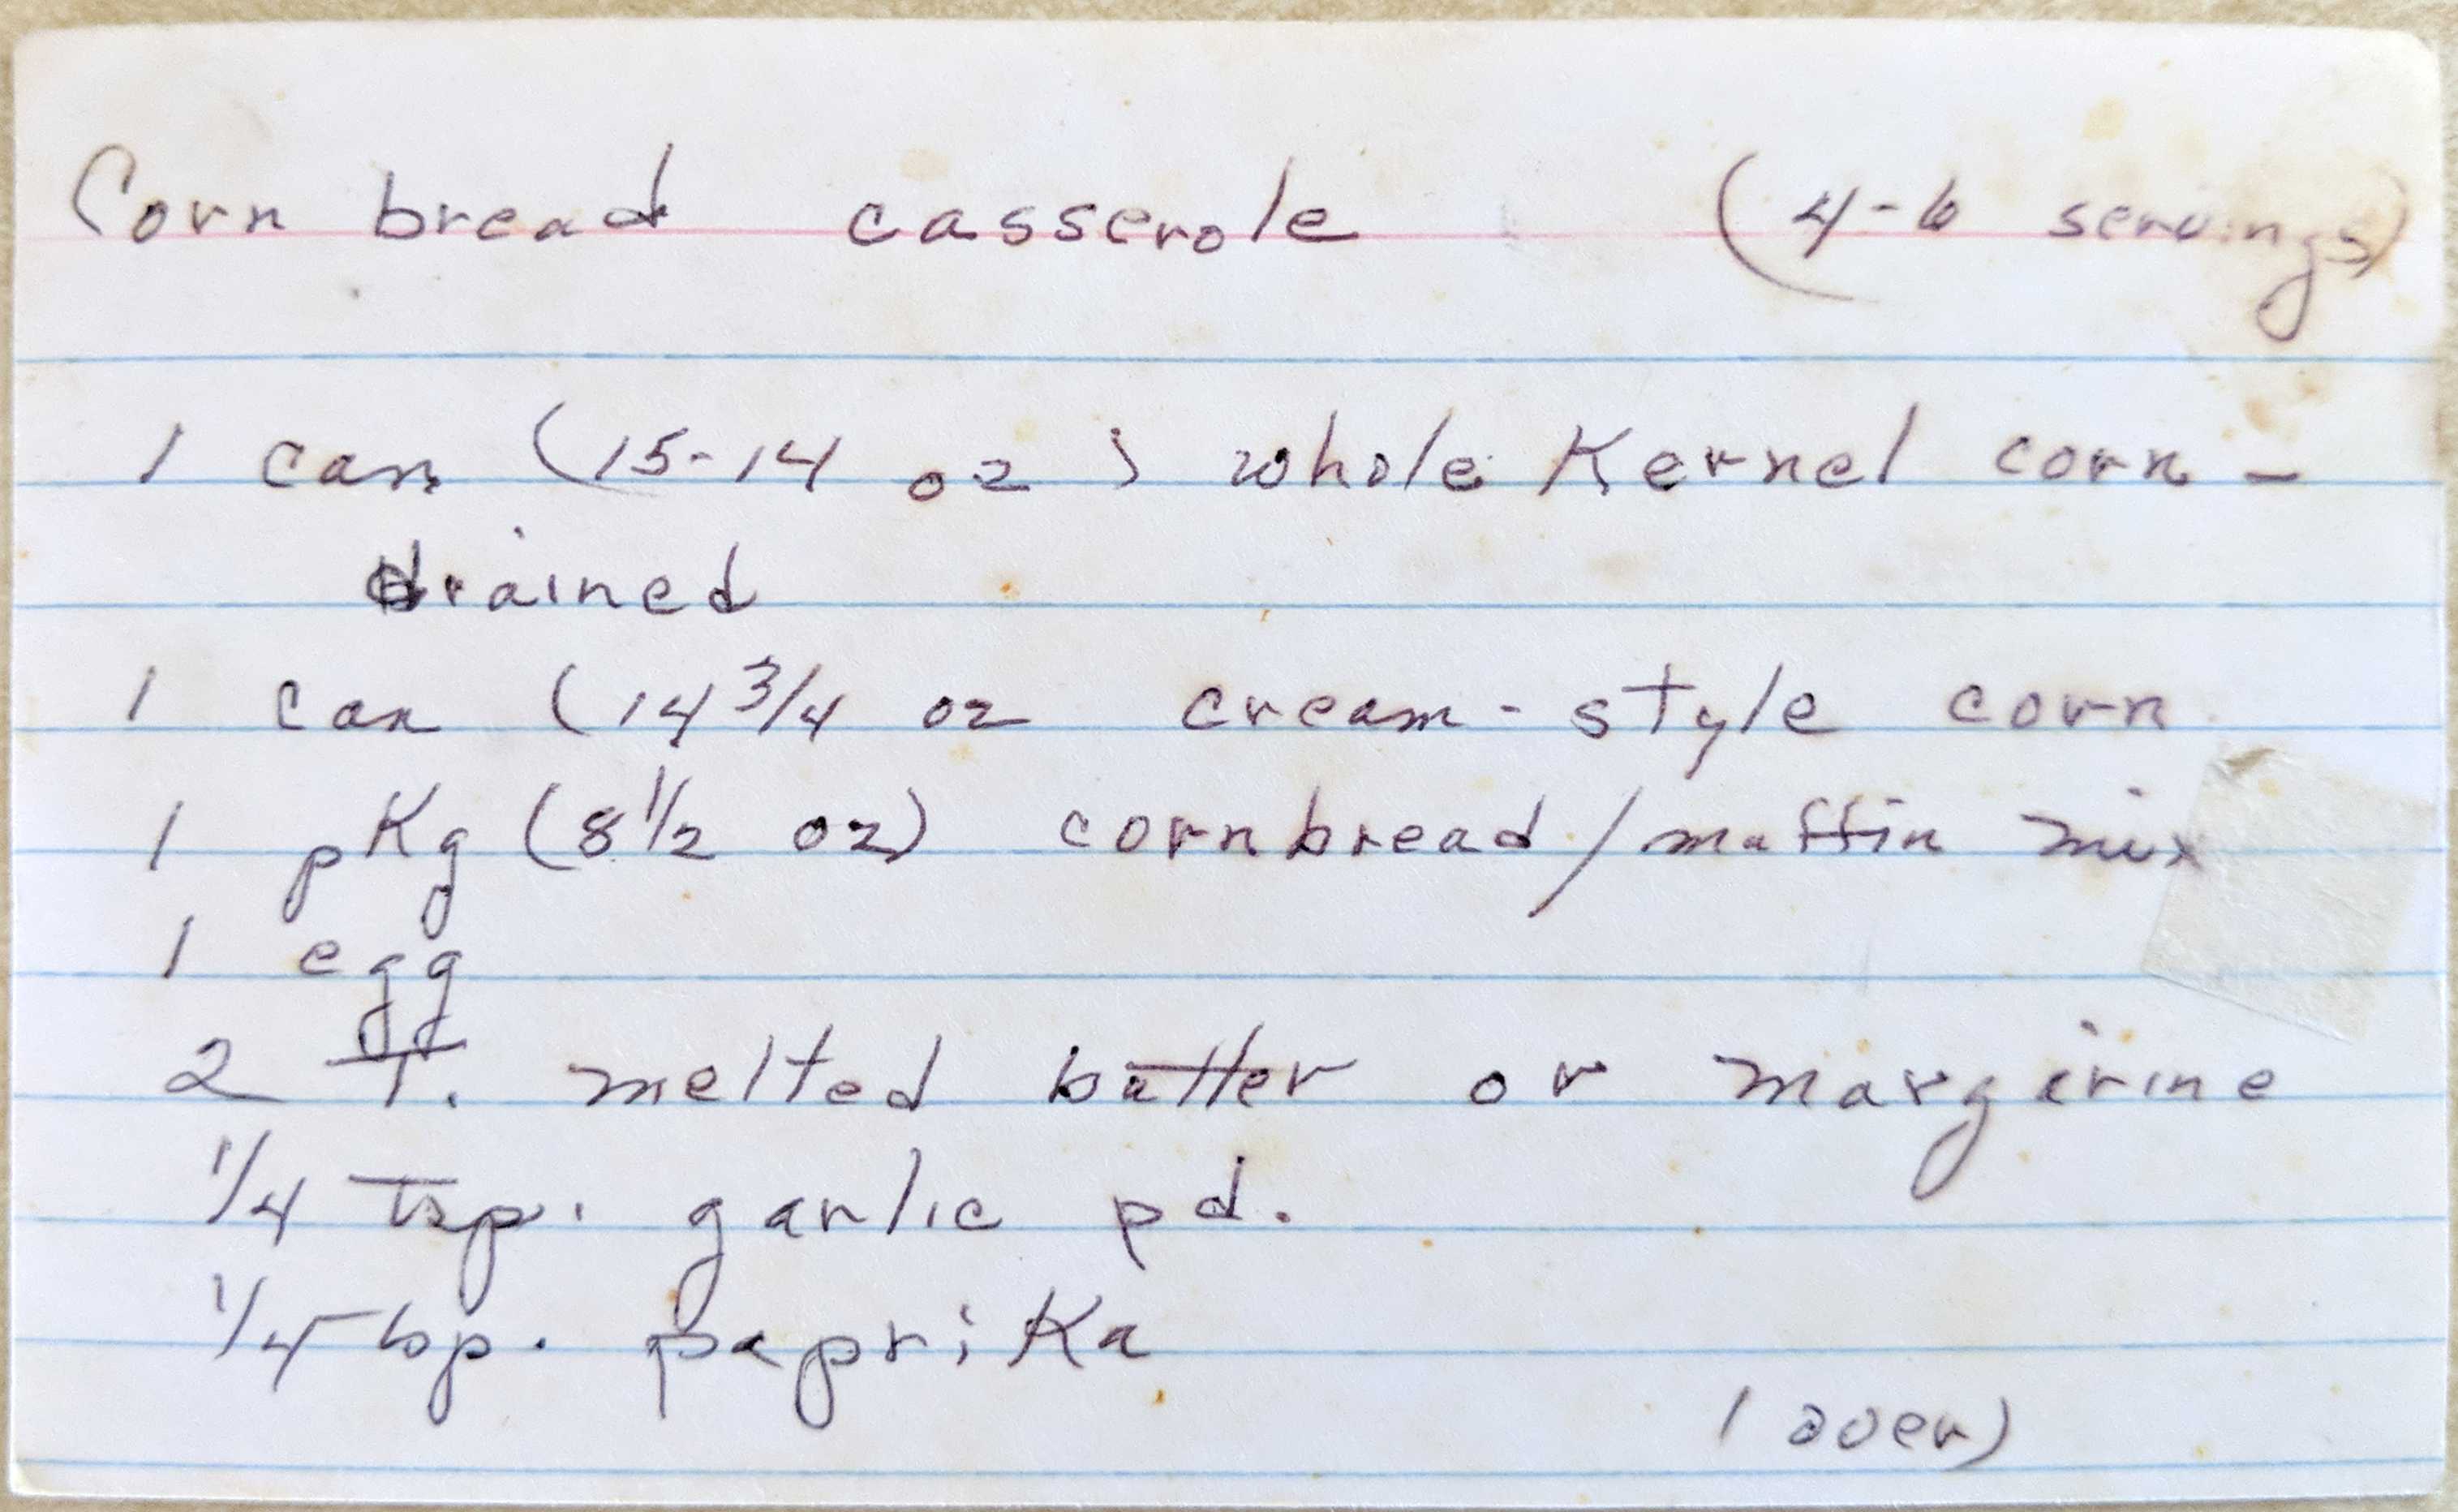 Corn bread casserole (4-6 servings)
1 can (15-14 oz) whole Kernel corn -
drained
1 can (14 3/4 oz cream-style corn
1 pKg (8 1/2 oz) cornbread/muffin mix
1 egg
2 T. melted butter or margirine
1/4 Tsp. garlic pd.
1/4 tsp. papriKa
(over)